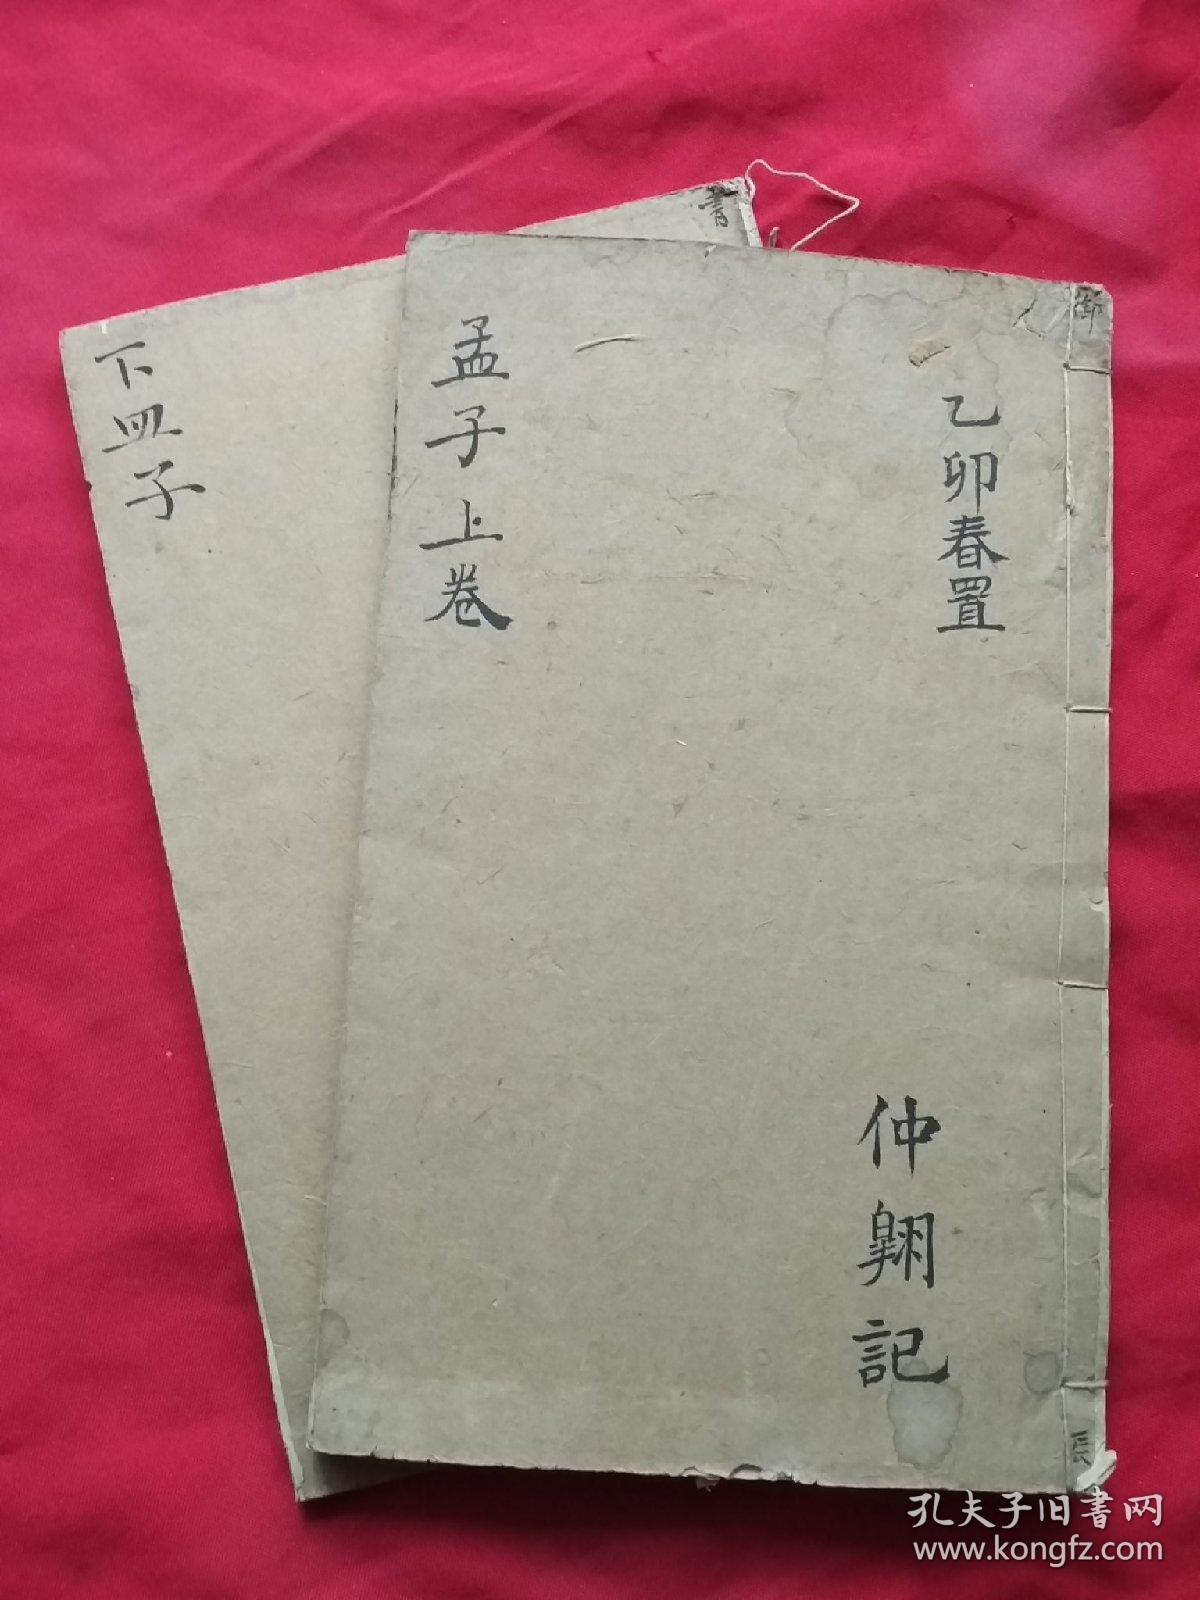 乙卯春置
仲翱記
孟子上卷
下皿子
書
御
孔夫子旧書网
www.kongfz.com